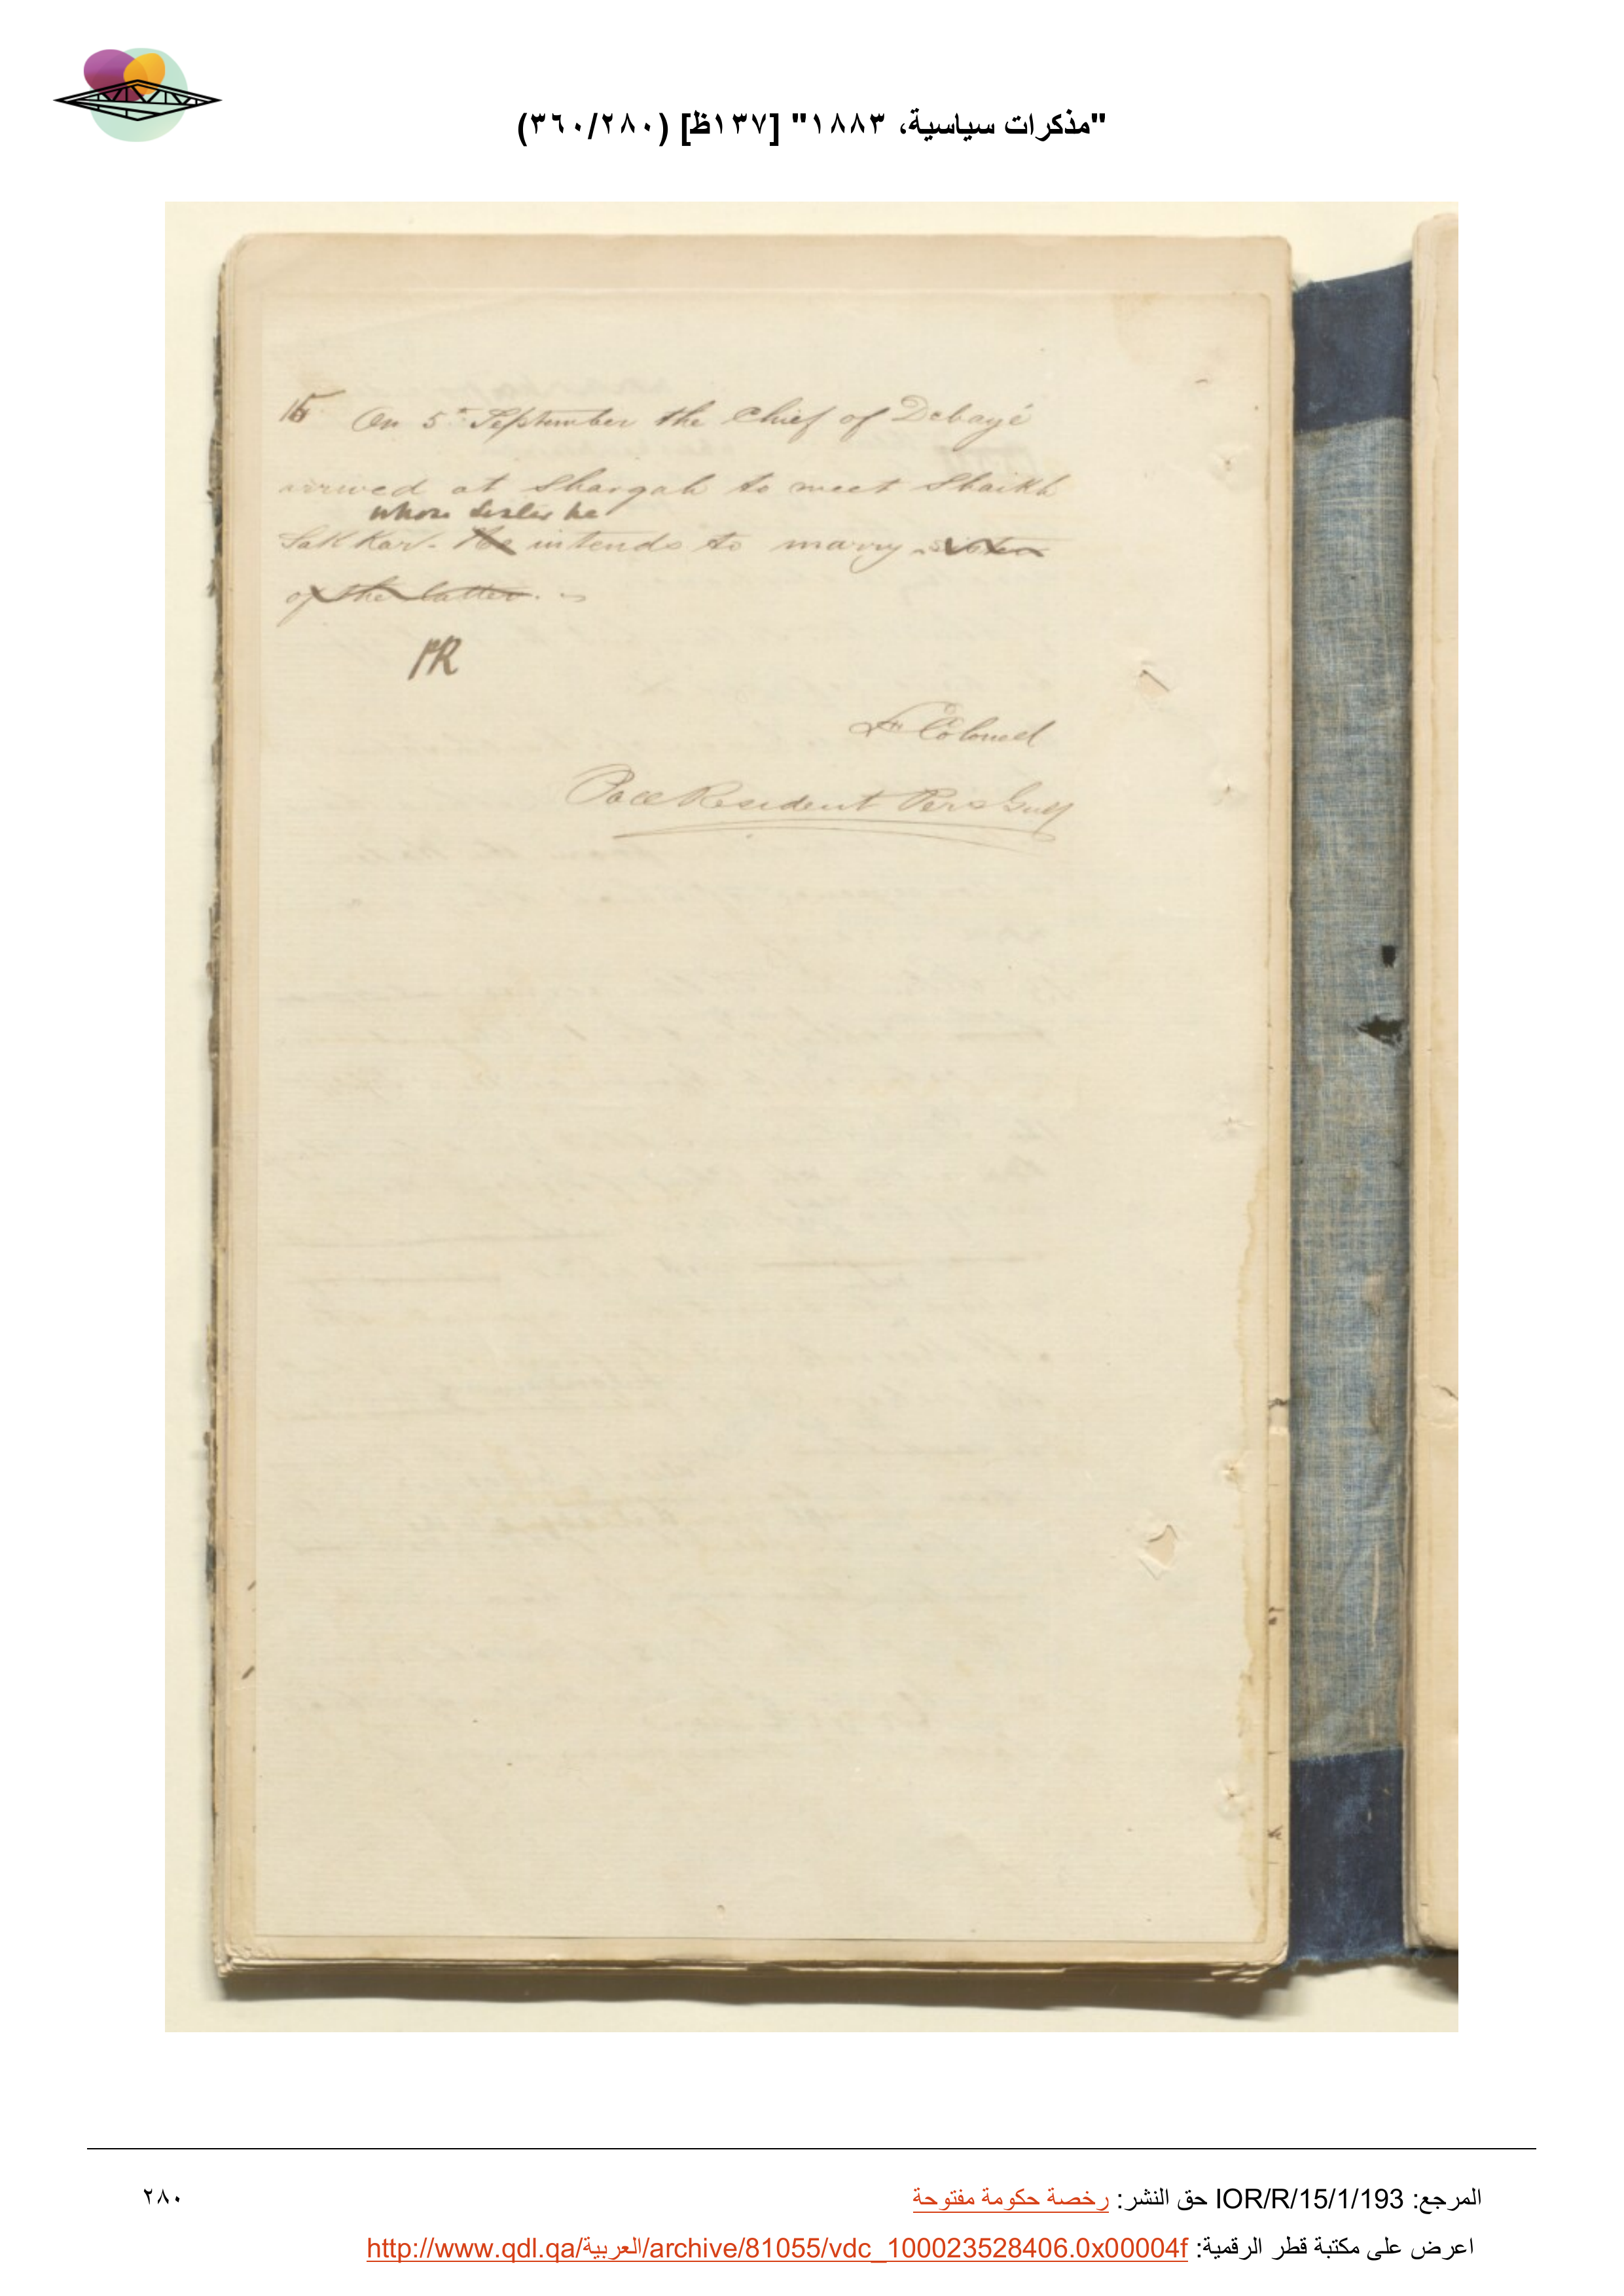 "مذكرات سياسية، ١٨٨٣" [١٣٧ظ] (٣٦٠/٢٨٠)
On 5th September the Chief of Debayé
arrived at Shargah to meet Shaikh
whose sister he
Sakkar. He intends to marry sister
of the latter.
Lt Colonel
Pol Resident Pers Gulf
المرجع: IOR/R/15/1/193 حق النشر: رخصة حكومة مفتوحة
٢٨٠
اعرض على مكتبة قطر الرقمية: http://www.qdl.qa/العربية/archive/81055/vdc_100023528406.0x00004f